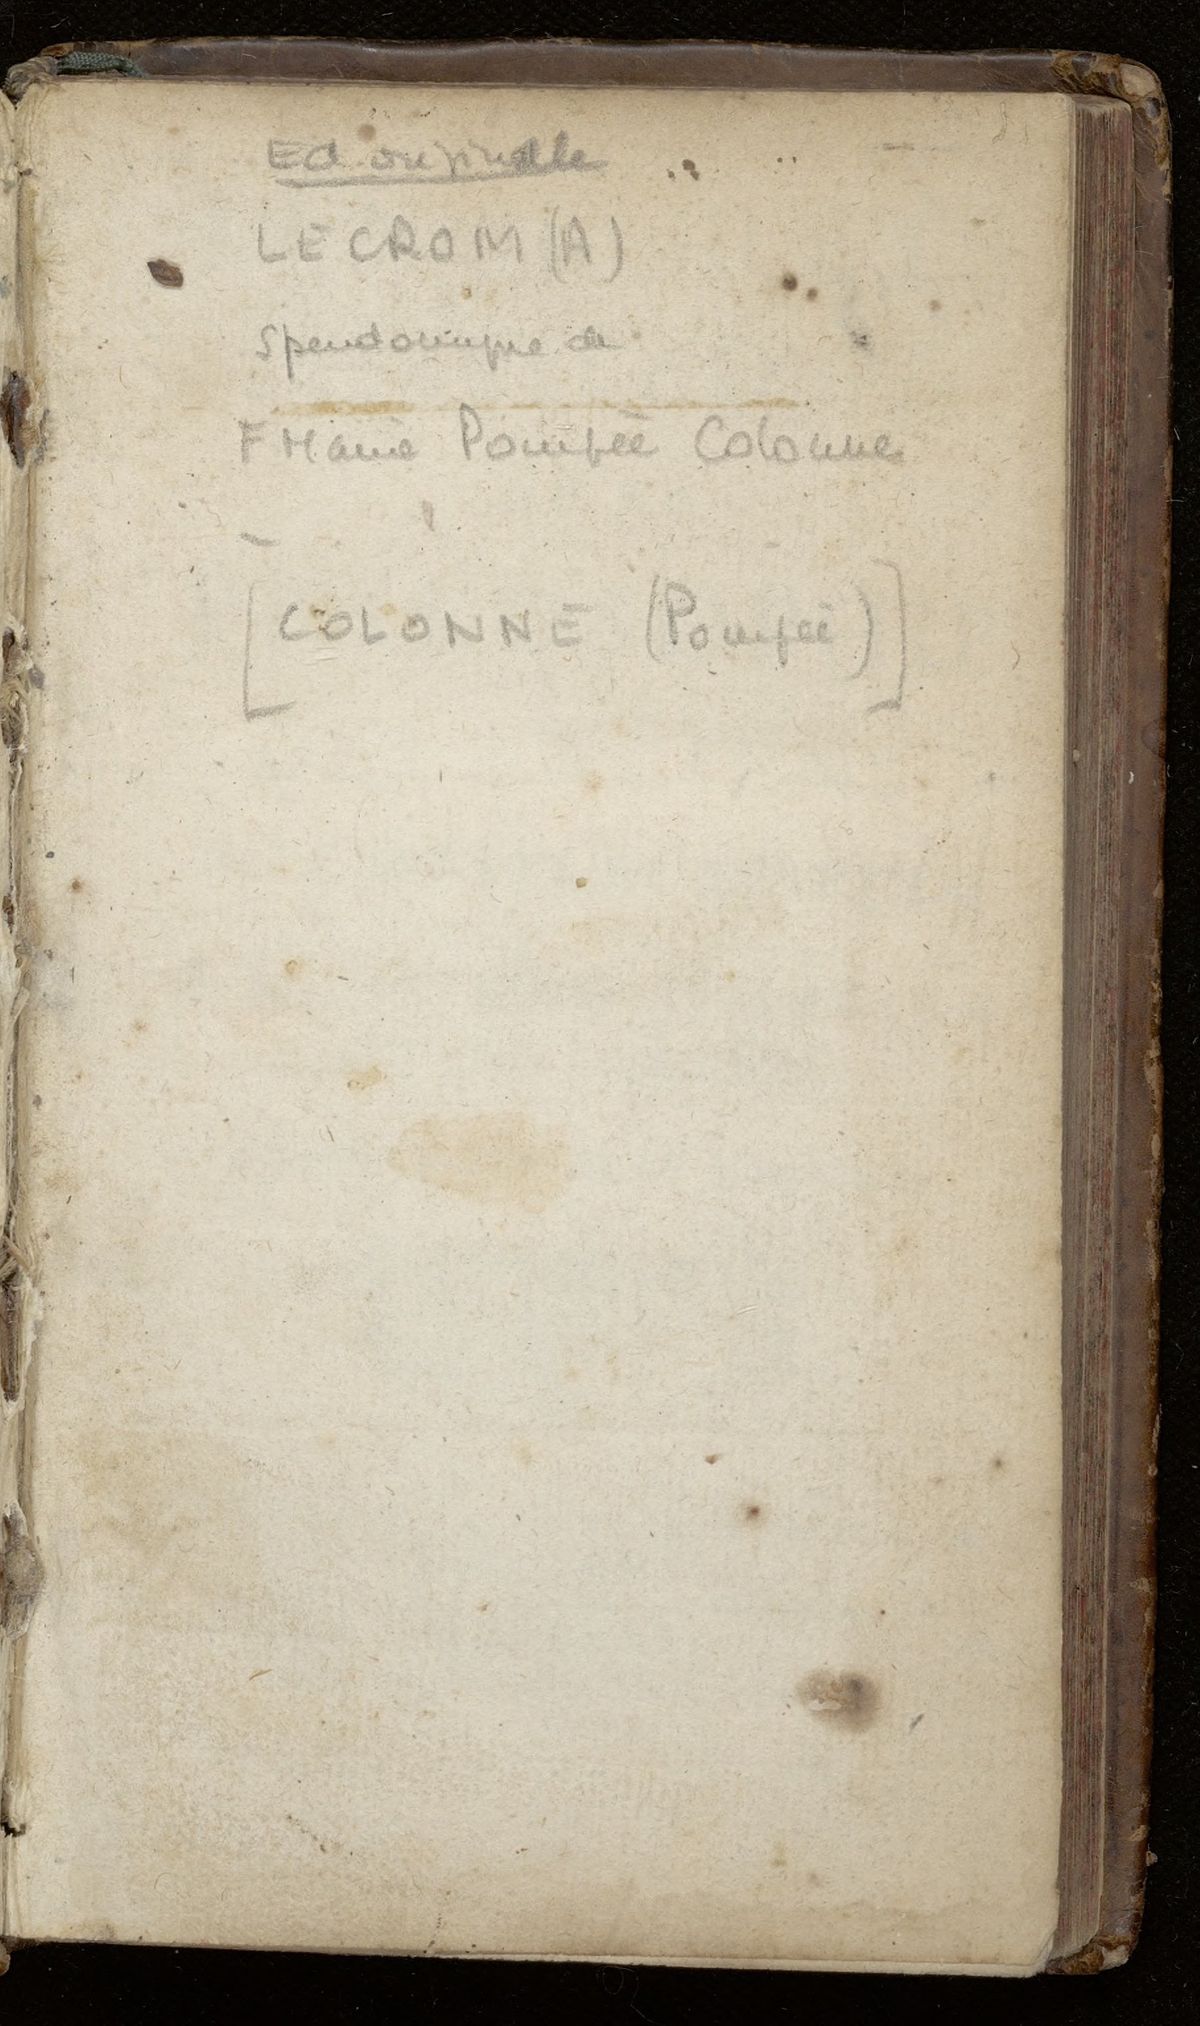 Ed originale
LECROM (A)
Speudonique de
F Marie Pompée Colonne
[COLONNE (Pompée)]